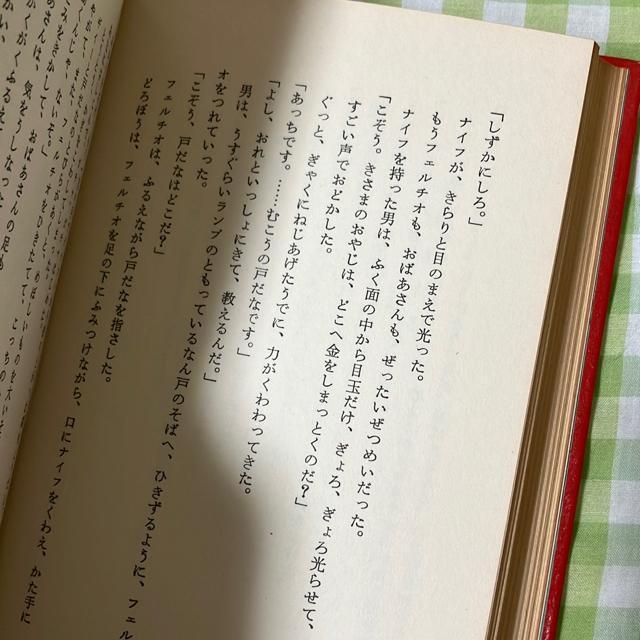 「しずかにしろ。」
ナイフが、きらりと目のまえで光った。
もうフェルチオも、おばあさんも、ぜったいぜつめいだった。
ナイフを持った男は、ふく面の中から目玉だけ、ぎょろ、ぎょろ光らせて、
「こぞう。きさまのおやじは、どこへ金をしまっとくのだ？」
すごい声でおどかした。
ぐっと、ぎゃくにねじあげたうでに、力がくわわってきた。
「あっちです。……むこうの戸だなです。」
「よし、おれといっしょにきて、教えるんだ。」
男は、うすぐらいランプのともっているなん戸のそばへ、ひきずるように、フェル
オをつれていった。
「こぞう、戸だなはどこだ？」
フェルチオは、ふるえながら戸だなを指さした。
どろぼうは、フェルチオを足の下にふみつけながら、口にナイフをくわえ、かた手に